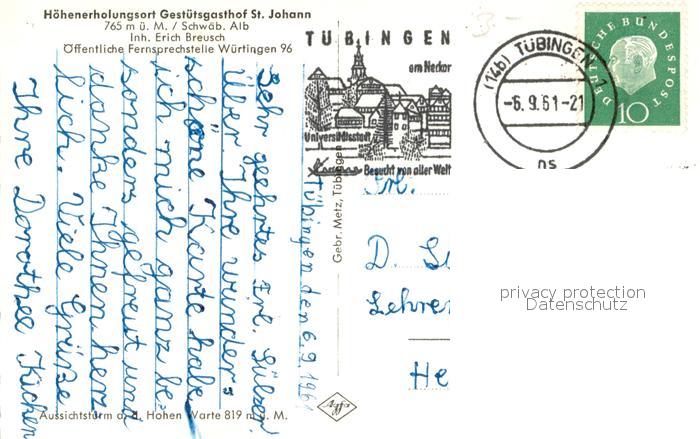 Höhenerholungsort Gestütsgasthof St. Johann
765 m ü. M. / Schwäb. Alb
Inh. Erich Breusch
Öffentliche Fernsprechstelle Würtingen 96
TÜBINGEN
am Neckar
Universitätsstadt
Besucht von aller Welt
(14b) TÜBINGEN 1
-6.9.61-21
ns
DEUTSCHE BUNDESPOST
10
3.-
Tübingen den 6.9.1961
Sehr geehrtes Frl. Sülzer!
Über Ihre wunder-
schöne Karte habe
ich mich ganz be-
sonders gefreut und
danke Ihnen herz
lich. Viele Grüße
Ihre Dorothee
Gebr. Metz, Tübingen
Frl.
D.
Lehrer
He
privacy protection
Datenschutz
Aussichtsturm a. d. Hohen Warte 819 m ü. M.
Agfa